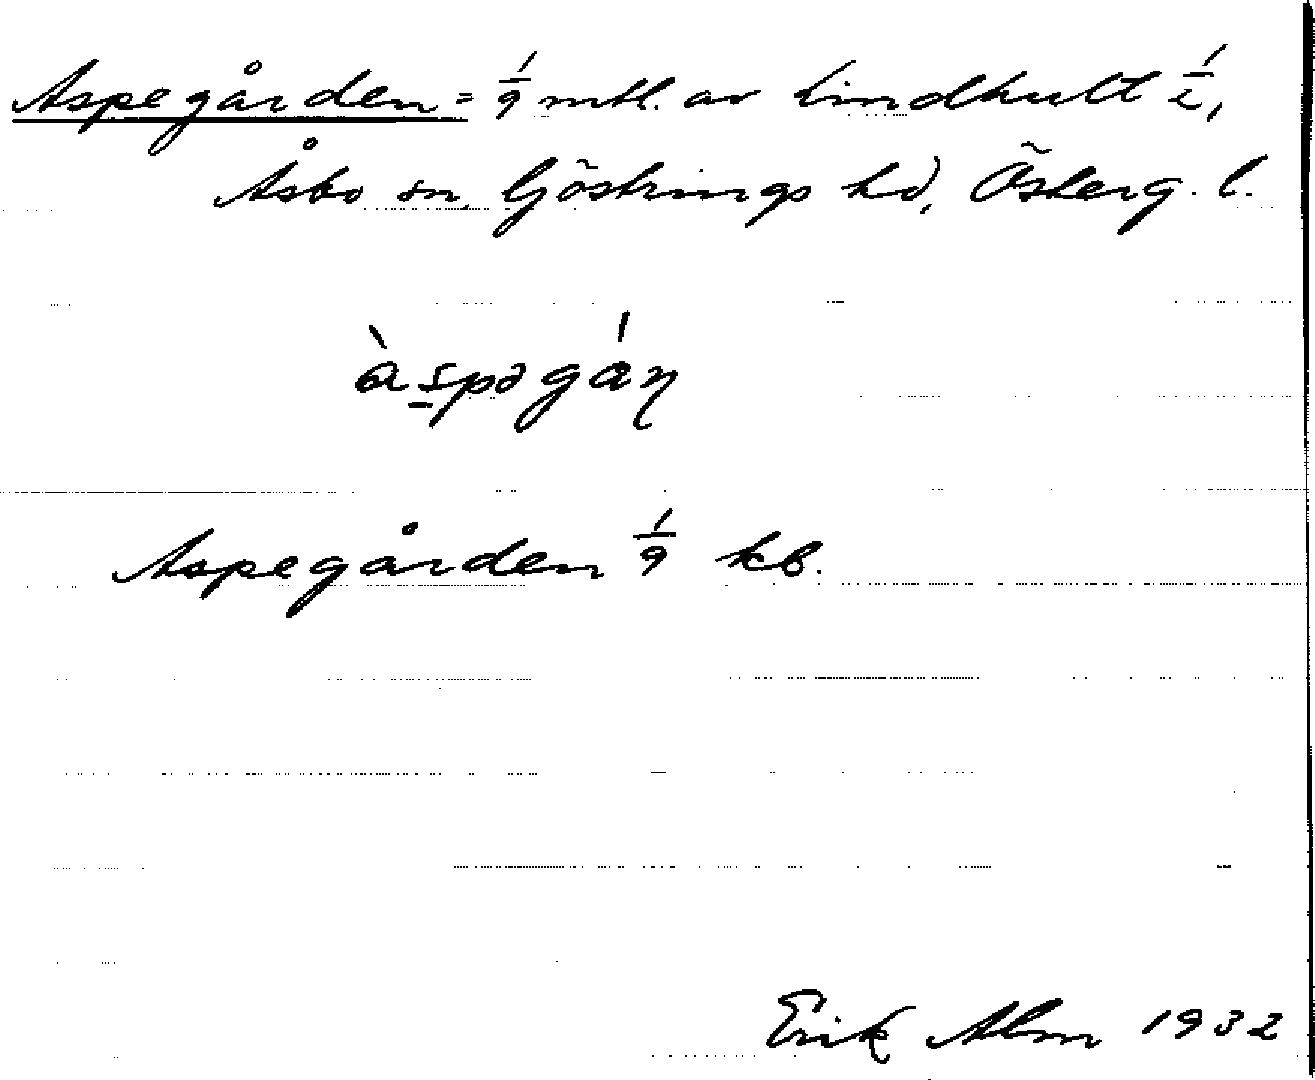 Aspegården = 1/9 mtl. av Lindhult 1/2,
Åsbo sn, Göstrings hd, Österg. l.
àspəgáɳ
Aspegården 1/9 kb.
Erik Alm 1932